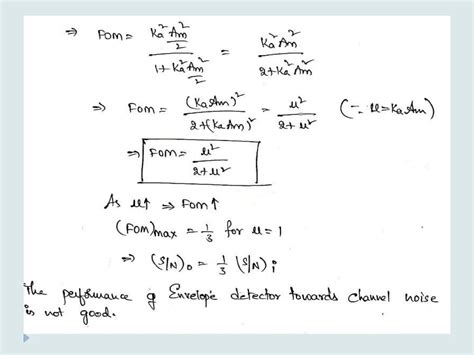 ⇒ FOM = (Ka²Am²/2)/(1+Ka²Am²/2) = Ka²Am²/(2+Ka²Am²)
⇒ FOM = (KaAm)²/(2+(KaAm)²) = μ²/(2+μ²) (∵ μ=KaAm)
⇒ FOM = μ²/(2+μ²)
As μ↑ ⇒ FOM↑
(FOM)max = 1/3 for μ = 1
⇒ (S/N)o = 1/3 (S/N)i
The performance of Envelope detector towards channel noise
is not good.